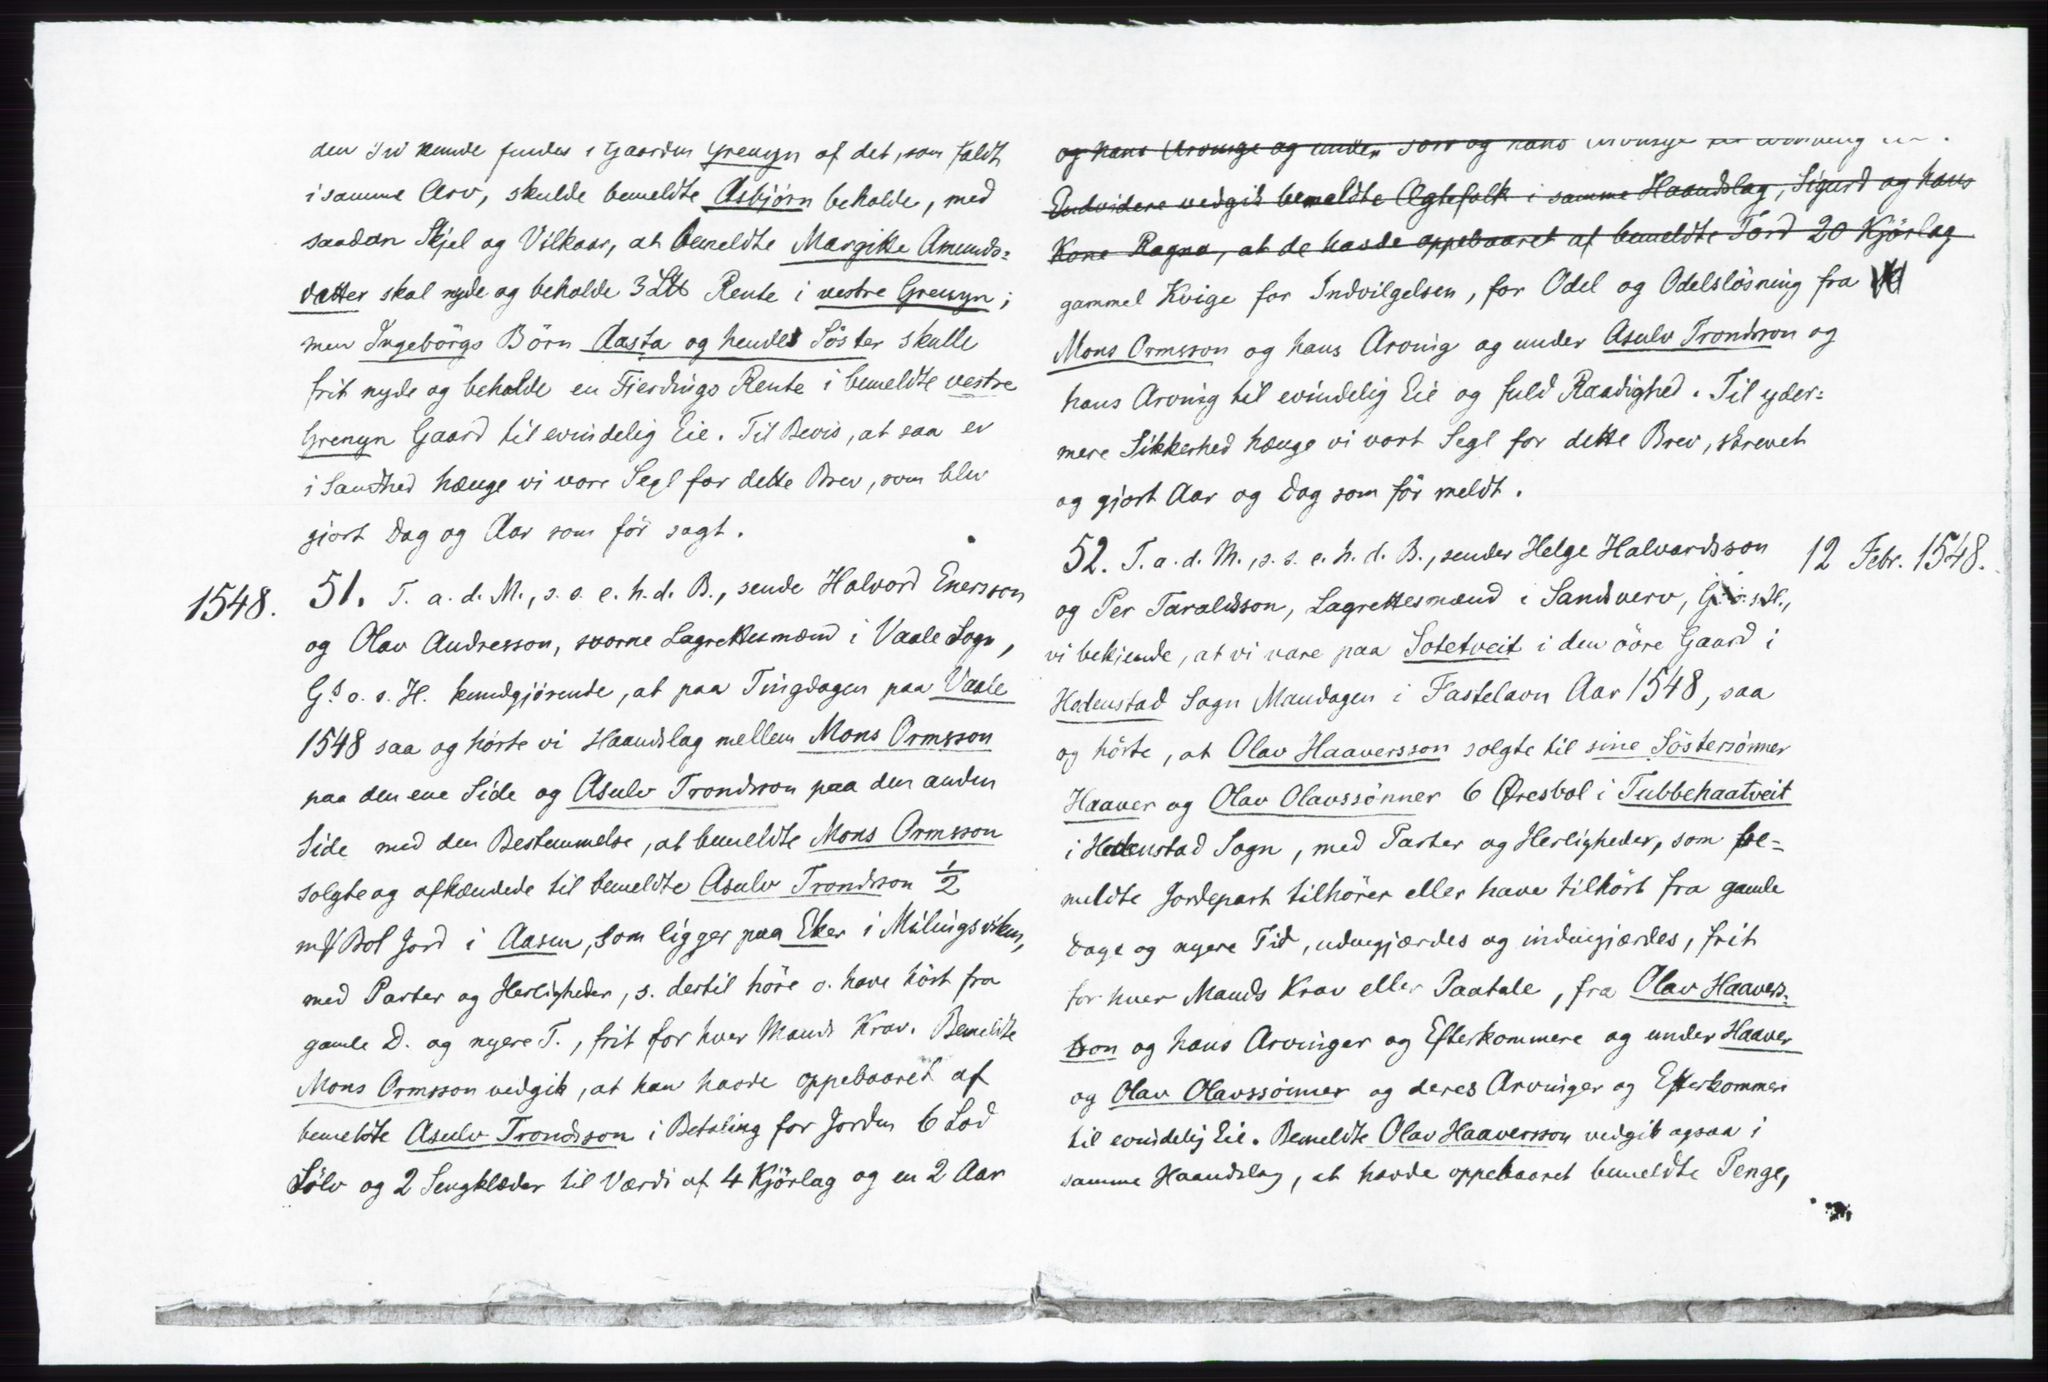 den Tid kunde findes i Gaarden Grenyn af det, som faldt
i samme Arv, skulde bemeldte Asbjørn beholde, med
saadan Skjel og Vilkaar, at bemeldte Margitte Amunds=
datter skal nyde og beholde 3 Rente i vestre Grenyn;
men Ingebörgs Börn Aasta og hendes Söster skulle
frit nyde og beholde en Fierdings Rente i bemeldte vestre
Grenyn Gaard til evindelig Eie. Til Bevis, at saa er
i Sandhed hænge vi vore Segl for dette Brev, som blev
gjort Dag og Aar som för sagt.
1548. 51. T. a. d. M., s. s. e. h. d. B., sende Halvord Enersson
og Olav Andresson, svorne Lagrettesmænd i Vaale Sogn,
Gs o. s. H. kundgjørende, at paa Tingdagen paa Vaale
1548 saa og hörte vi Haandslag mellem Mons Ormsson
paa den ene Side og Asulv Trondsson paa den anden
Side med den Bestemmelse, at bemeldte Mons Ormsson
solgte og afhændede til bemeldte Asulv Trondsson ½
Bol Jord i Aasen, som ligger paa Eker i Milingsviken,
med Parter og Herligheder, s. dertil höre o. have hört fra
gamle D. og nyere T., frit for hver Mands Krav. Bemeldte
Mons Ormsson vedgik, at han havde oppebaaret af
bemeldte Asulv Trondsson i Betaling for Jorden 6 Lod
Sölv og 2 Sengklæder til Værdi af 4 Kjörlag og en 2 Aar
og hans Arvinge og under
Endvidere vedgik bemeldte Ægtefolk i samme Haandslag, Sigurd og hans
Kone Ragna, at de havde oppebaaret af bemeldte Tord 20 Kjörlag
gammel Kvige for Indvilgelsen, for Odel og Odelslösning fra
Mons Ormsson og hans Arvinge og under Asulv Trondsson og
hans Arving til evindelig Eie og fuld Raadighed. Til yder=
mere Sikkerhed hænge vi vort Segl for dette Brev, skrevet
og gjort Aar og Dag som för meldt.
52. T. a. d. M., s. s. e. h. d. B., sender Helge Halvardsson 12 Febr. 1548.
og Per Taraldsson, Lagrettesmænd i Sandsverv, G. o. s. H.,
vi bekjende, at vi vare paa Sotetveit i den övre Gaard i
Hedenstad Sogn Mandagen i Fastelavn Aar 1548, saa
og hörte, at Olav Haaversson solgte til sine Söstersönner
Haaver og Olav Olavssönner 6 Øresbol i Tubbehaatveit
i Hedenstad Sogn, med Parter og Herligheder, som be=
meldte Jordepart tilhörer eller have tilhört fra gamle
Dage og nyere Tid, udengjærdes og indengjærdes, frit
for hver Mands Krav eller Paatale, fra Olav Haavers=
son og hans Arvinger og Efterkommere og under Haaver
og Olav Olavssönner og deres Arvinger og Efterkommere
til evindelig Eie. Bemeldte Olav Haaversson vedgik ogsaa i
samme Haandslag, at havde oppebaaret bemeldte Penge,